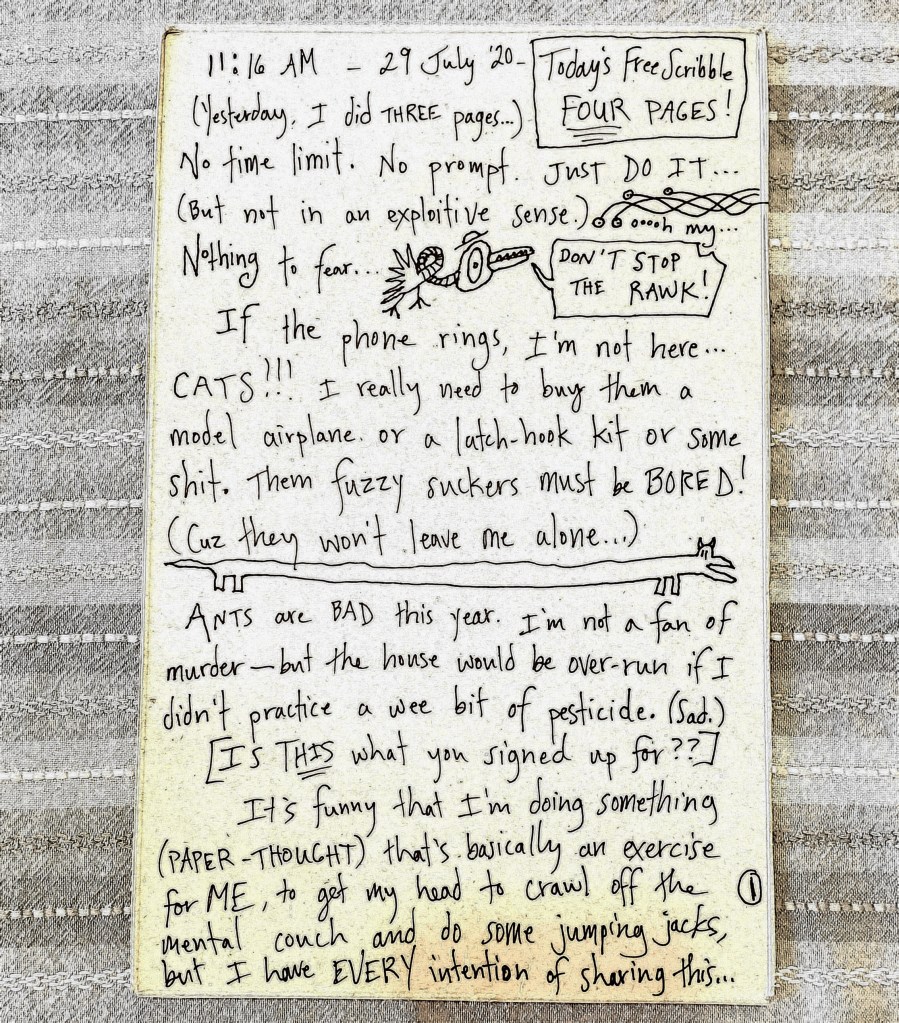 11:16 AM - 29 July '20-
Today's Free Scribble
FOUR PAGES!
(Yesterday, I did THREE pages...)
No time limit. No prompt. JUST DO IT...
(But not in an exploitive sense.)
ooooh my...
Nothing to fear...
DON'T STOP
THE RAWK!
If the phone rings, I'm not here...
CATS!!! I really need to buy them a
model airplane. or a latch-hook kit or some
shit. Them fuzzy suckers must be BORED!
(Cuz they won't leave me alone...)
ANTS are BAD this year. I'm not a fan of
murder—but the house would be over-run if I
didn't practice a wee bit of pesticide. (Sad.)
[Is THIS what you signed up for??]
It's funny that I'm doing something
(PAPER-THOUGHT) that's basically an exercise
for ME, to get my head to crawl off the
mental couch and do some jumping jacks,
but I have EVERY intention of sharing this...
1